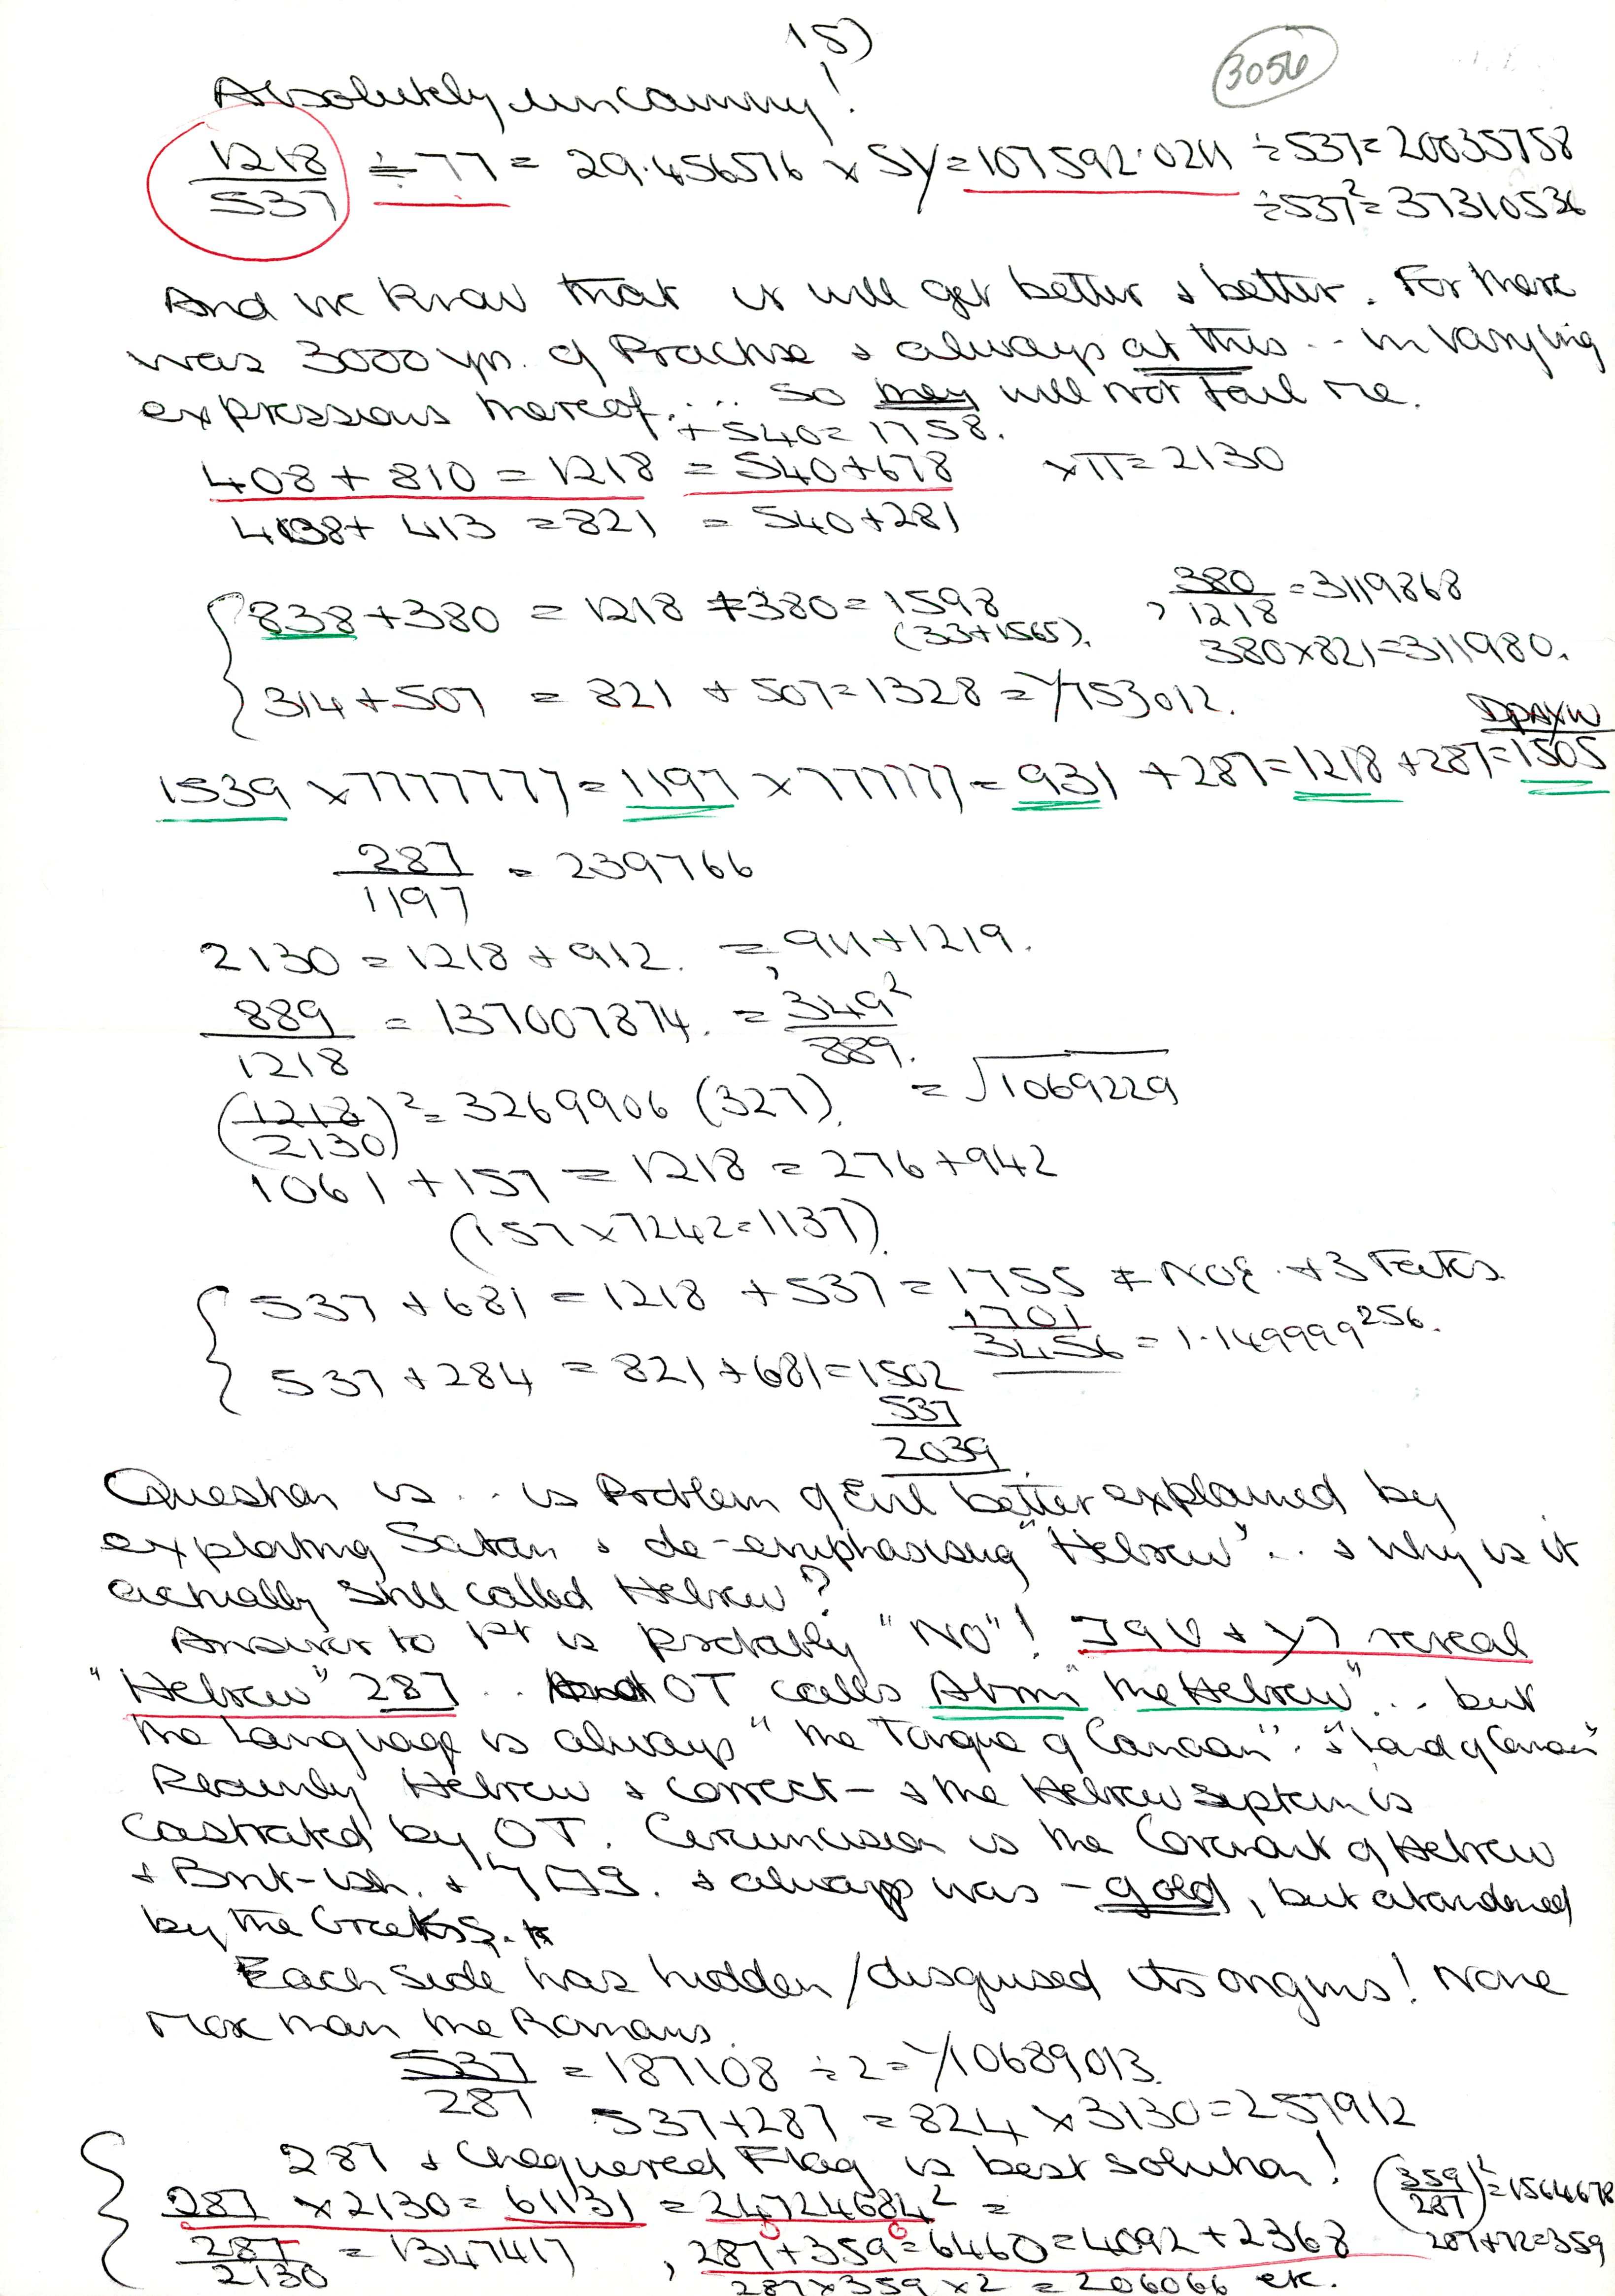 15)
3056
Absolutely uncanny!
1218/537 ÷ 77 = 29.456576 × SY = 107592.0211 ÷ 537 = 20035758
÷ 537² = 37310536
And we know that it will get better & better. For there
was 3000 yrs. of Practise & always at this .. in varying
expressions thereof.... So they will not fail me.
+ 540 = 1758.
408 + 810 = 1218 = 540 + 678 × π = 2130
408 + 413 = 821 = 540 + 281
838 + 380 = 1218 + 380 = 1598 , 380/1218 = 3119868
(33 + 1565). 380 × 821 = 311980.
314 + 507 = 821 + 507 = 1328 = 1/753012.
1539 × 7777777 = 1197 × 777777 = 931 + 287 = 1218 + 287 = 1505
287/1197 = 239766
2130 = 1218 + 912. = , 911 + 1219.
889/1218 = 137007874. = 349²/889.
(1218/2130)² = 3269906 (327). = √1069229
1061 + 157 = 1218 = 276 + 942
(157 × 7242 = 1137)
537 + 681 = 1218 + 537 = 1755 + 3 Fates.
1701
3456 = 1.149999²⁵⁶.
537 + 284 = 821 + 681 = 1502
537
2039
Question is .. is Problem of Evil better explained by
exploring Satan & de-emphasising "Hebrew" .. & why is it
actually still called Hebrew?
Answer to 1st is probably "NO"! reveal
"Hebrew" 287 .. OT calls Abm "the Hebrew" .. but
the language is always "the Tongue of Canaan". & "Land of Canaan"
Hebrew & correct – & the Hebrew system is
castrated by OT. Circumcision is the Covenant of Hebrew
& Brit-ish. & & always was – gold, but abandoned
by the Greeks.
Each side has hidden / disguised its origins! None
more than the Romans.
537/287 = 187108 ÷ 2 = 1/10689013.
537 + 287 = 824 × 3130 = 257912
287 & Chequered Flag is best solution!
287 × 2130 = 61131 = 24724684² = (359/287)² = 1564678
287/2130 = 1347417 , 287 + 359 = 6460 = 4092 + 2368 287 + 72 = 359
287 × 359 × 2 = 206066 etc.